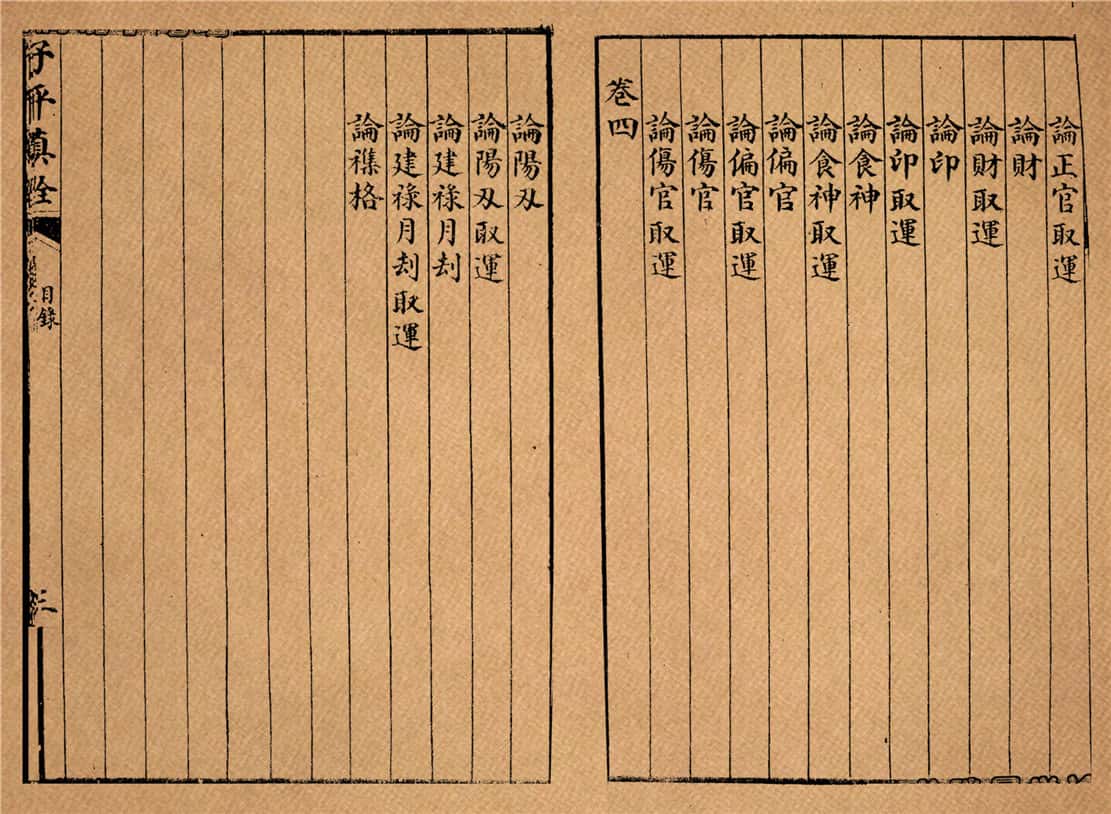 論正官取運
論財
論財取運
論印
論印取運
論食神
論食神取運
論偏官
論偏官取運
論傷官
論傷官取運
卷四
論陽刄
論陽刄取運
論建祿月刦
論建祿月刦取運
論襍格
子平真詮
目錄